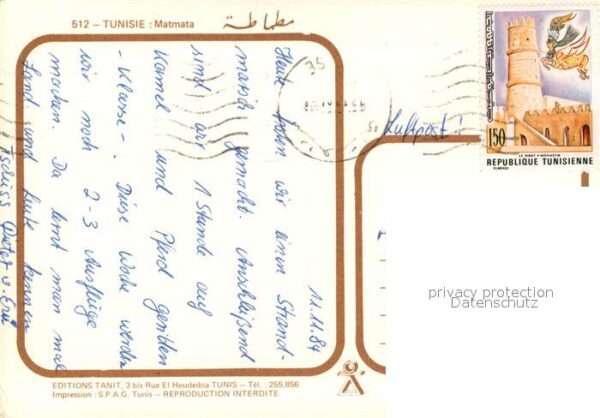 512 – TUNISIE : Matmata
مطماطة
150
LE RIBAT • MONASTIR
REPUBLIQUE TUNISIENNE
Luftpost!
11.11.84
Heute haben wir einen Strand-
marsch gemacht. Anschließend
sind wir 1 Stunde auf
Kamel und Pferd geritten
- Klasse - Diese Woche werden
wir noch 2-3 Ausflüge
machen. Da lernt man mal
Land und Leute kennen
Tschüss Peter u.
privacy protection
Datenschutz
EDITIONS TANIT, 3 bis Rue El Houdeibia TUNIS – Tél. : 255.856
Impression : S.P.A.G. Tunis – REPRODUCTION INTERDITE